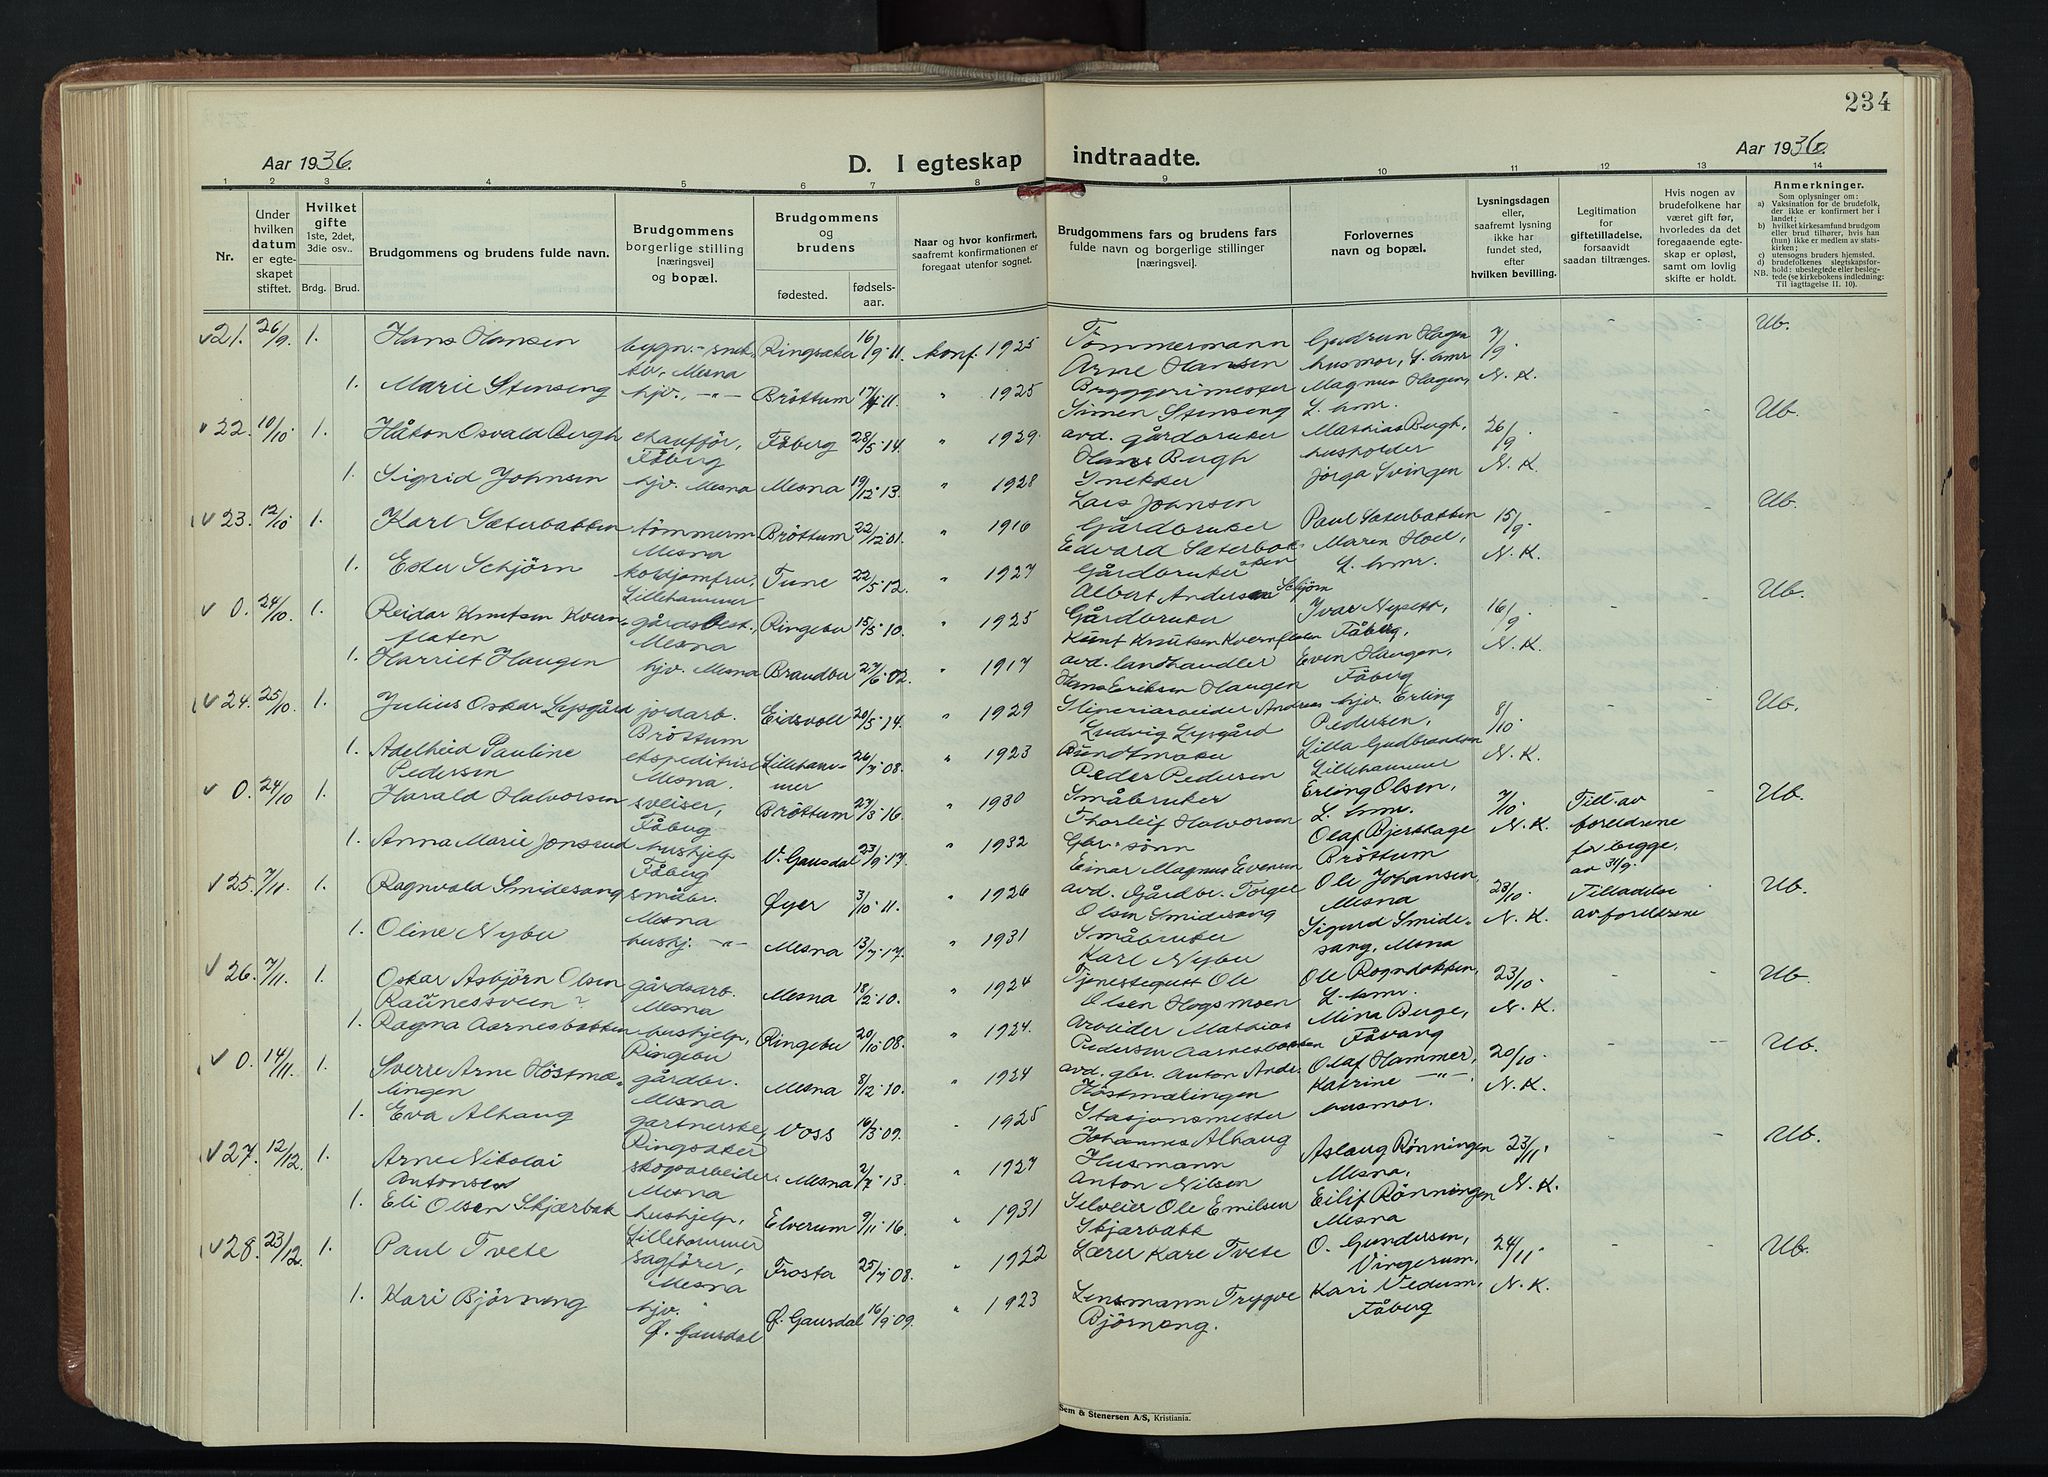 234
Aar 1936.
D. I egteskap indtraadte.
Aar 1936.
1 2 3 4 5 6 7 8 9 10 11 12 13 14
Nr.
Under hvilken datum er egteskapet stiftet.
Hvilket gifte 1ste, 2det, 3die osv..
Brdg. Brud.
Brudgommens og brudens fulde navn.
Brudgommens borgerlige stilling [næringsvei] og bopæl.
Brudgommens og brudens
fødested.
fødselsaar.
Naar og hvor konfirmert, saafremt konfirmationen er foregaat utenfor sognet.
Brudgommens fars og brudens fars fulde navn og borgerlige stillinger [næringsvei].
Forlovernes navn og bopæl.
Lysningsdagen eller, saafremt lysning ikke har fundet sted, efter hvilken bevilling.
Legitimation for giftetilladelse, forsaavidt saadan tiltrænges.
Hvis nogen av brudefolkene har været gift før, hvorledes da det foregaaende egteskap er opløst, samt om lovlig skifte er holdt.
Anmerkninger.
Som oplysninger om:
a) Vaksination for de brudefolk, der ikke er konfirmert her i landet;
b) hvilket kirkesamfund brudgom eller brud tilhører, hvis han (hun) ikke er medlem av statskirken;
c) utensogns bruders hjemsted.
d) brudefolkenes slegtskapsforhold: ubeslegtede eller beslegtede (se kirkebokens indledning: NB. Til iagttagelse II. 10).
21. 26/9. 1. Hans Hansen bygn.-snek. Mesna Ringsaker 16/9-11. konf. 1925 Tømmermann Arne Hansen Gudrun Hagen husmor, L.hmr 7/9. Ub.
1. Marie Stenseng hjv. -"- Brøttum 17/4-11. " 1925 Bryggerimester Simen Stenseng Magnus Hagen, L.hmr. N. K.
22. 10/10. 1. Håkon Osvald Bergh chauffør, Fåberg Fåberg 28/5-14. " 1929. avd. gårdbruker Hans Bergh Mathias Bergh, husholder 26/9. - - Ub.
1. Sigrid Johnsen hjv. Mesna Mesna 19/12-13. " 1928 Snekker Lars Johnsen Jørga Svingen N. K.
23. 12/10 1. Karl Sæterbakken tømmerm. Mesna Brøttum 22/12-01. " 1916 Gårdbruker Edvard Sæterbakken Paul Sæterbakken 15/9. - - Ub.
1. Ester Schjørn koldjomfru, Lillehammer Tune 22/5-12. " 1927 Gårdbruker Albert Andersen Schjørn Maren Hoel, L.hmr. N. K.
0. 24/10 1. Reidar Knutsen Kvernflaten gårdsbest., Mesna Ringebu 15/5-10. " 1925 Gårdbruker Knut Knutsen Kvernflaten Ivar Nysett, Fåberg, 16/9 - - Ub.
1. Harriet Haugen hjv. Mesna Brandbu 27/6-02. " 1917 avd. landhandler Hans Eriksen Haugen Even Haugen, Fåberg N. K.
24. 25/10. 1. Julius Oskar Lysgård jordarb. Brøttum Eidsvoll 20/5-14. " 1929 Sliperiarbeider Andreas Ludvig Lysgård hjv. Erling Pedersen, 8/10. - - Ub.
1. Adelheid Pauline Pedersen ekspeditrise Mesna. Lillehammer 26/7-08. " 1923 Buntmaker Peder Pedersen Lilla Gudbrandsen Lillehammer N. K.
0. 24/10 1. Harald Halvorsen sveiser, Fåberg Brøttum 27/3-16. " 1930 Småbruker Thorleif Halvorsen Erling Olsen, L.hmr. 7/10. Till. av foreldrene for begge, av 31/9. - Ub.
1. Anna Marie Jonsrud hushjelp Fåberg V. Gausdal 23/9-17. " 1932 Gbr.sønn Einar Magnus Evensen Olaf Bjerkhage Brøttum N. K.
25. 7/11. 1. Ragnvald Smidesang småbr. Mesna Øyer 3/10-11. " 1926 avd. Gårdbr. Torger Olsen Smidesang Ole Johansen, Mesna 23/10. Tilladelse av foreldrene - Ub.
1. Oline Nybu hushj. -"- Mesna 13/7-17. " 1931 Småbruker Karl Nybu Sigurd Smidesang, Mesna N. K.
26. 7/11. 1. Oskar Asbjørn Olsen Raunessveen gårdsarb. Mesna Mesna 18/2-10. " 1924 Tjenestegutt Ole Olsen Hogsmoen Ole Rogndokken, L.hmr. 23/10. - - Ub.
1. Ragna Aarnesbakken hushjelp, Ringebu Ringebu 20/10-08. " 1924. Arbeider Mathias Pedersen Aarnesbakken Mina Berge, Fåvang N. K.
0. 14/11. 1. Sverre Arne Høstmælingen gårdbr. Mesna Mesna 8/12-10. " 1924 avd. gbr. Anton Anders. Høstmælingen Olaf Hammer, 20/10. - - Ub.
1. Eva Alhaug gartnerske, Ringsaker Voss 16/3-09. " 1925 Stasjonsmester Johannes Alhaug Katrine -"-, husmor. N. K.
27. 12/12. 1. Arne Nikolai Antonsen skogsarbeider. Mesna Mesna 2/7-13. " 1927 Husmann Anton Nilsen Aslaug Rønningen Mesna, 23/11. - - Ub.
1. Eli Olsen Skjærbak hushjelp, Lillehammer Elverum 9/11-16. " 1931 Selveier Ole Emilsen Skjærbakk Eilif Rønningen Mesna N. K.
28. 23/12. 1. Paul Tvete sagfører, Mesna Frosta 25/7-08. " 1922 Lærer Kare Tvete O. Gundersen, Vingerum, 24/11. - - Ub.
1. Kari Bjørneng hjv. Ø. Gausdal Ø. Gausdal 16/9-09. " 1923 Lensmann Trygve Bjørneng. Kari Vedum, Fåberg N. K.
Sem & Stenersen A/S, Kristiania.